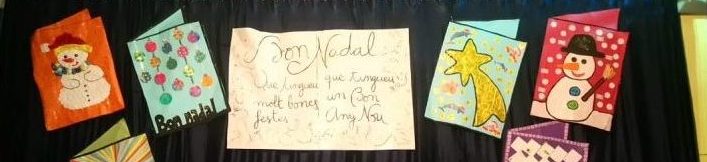 Bon Nadal
Bon Nadal
Que tingueu que tingueu
molt bones un Bon
festes Any Nou